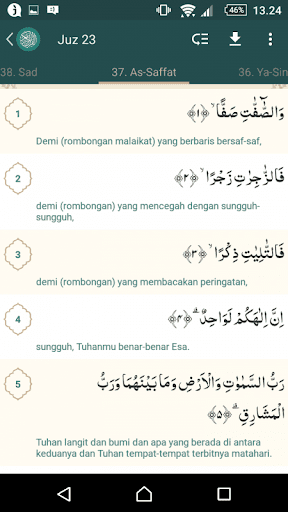 46% 13.24
Juz 23
38. Sad 37. As-Saffat 36. Ya-Sin
1
وَالصّٰۤفّٰتِ صَفًّاۙ ﴿١﴾
Demi (rombongan malaikat) yang berbaris bersaf-saf,
2
فَالزّٰجِرٰتِ زَجْرًاۙ ﴿٢﴾
demi (rombongan) yang mencegah dengan sungguh-
sungguh,
3
فَالتّٰلِيٰتِ ذِكْرًاۙ ﴿٣﴾
demi (rombongan) yang membacakan peringatan,
4
اِنَّ اِلٰهَكُمْ لَوَاحِدٌۗ ﴿٤﴾
sungguh, Tuhanmu benar-benar Esa.
5
رَبُّ السَّمٰوٰتِ وَالْاَرْضِ وَمَا بَيْنَهُمَا وَرَبُّ
الْمَشَارِقِۗ ﴿٥﴾
Tuhan langit dan bumi dan apa yang berada di antara
keduanya dan Tuhan tempat-tempat terbitnya matahari.